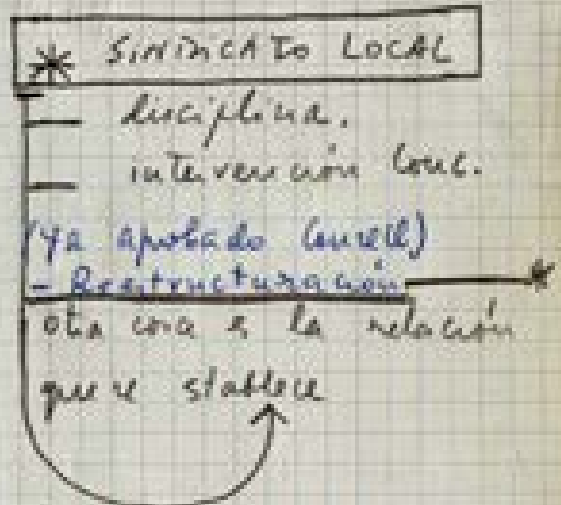 * SINDICATO LOCAL
— disciplina.
— intervención Conc.
(ya aprobado Consell)
- Reestructuración
otra cosa es la relación
que se stablece